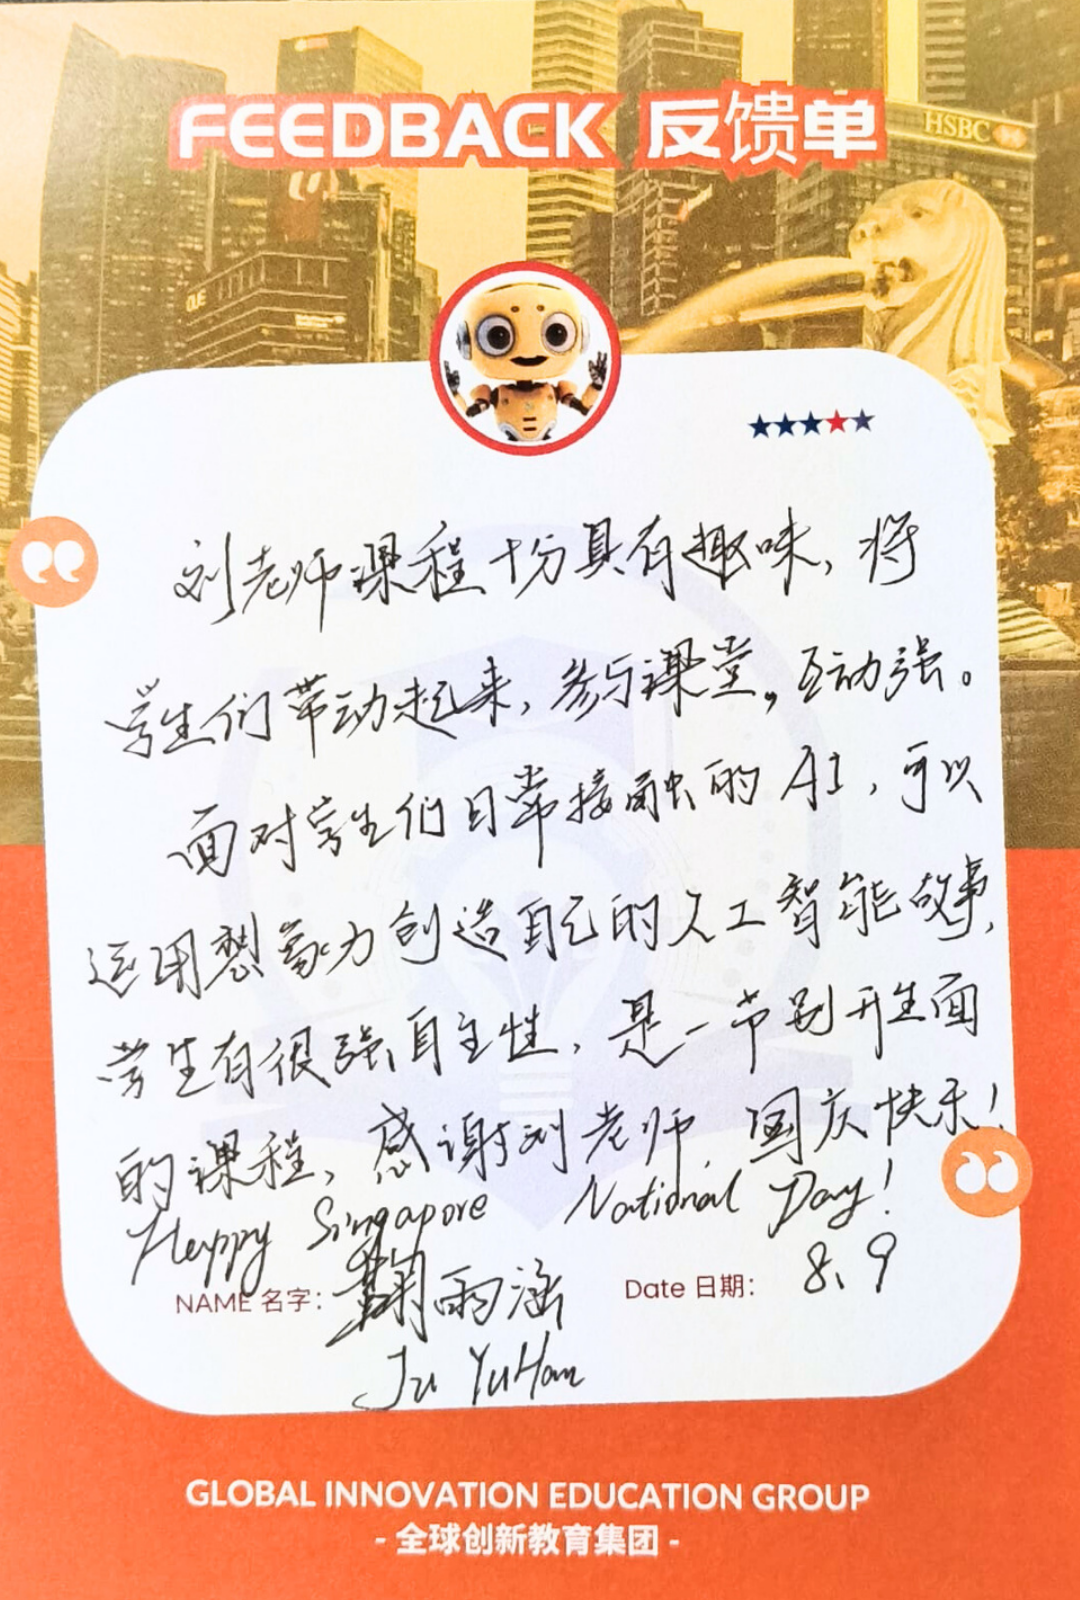 FEEDBACK 反馈单
HSBC
OUE
刘老师课程十分具有趣味,将
学生们带动起来,参与课堂,互动强。
面对学生们日常接触的AI,可以
运用想象力创造自己的人工智能故事,
学生有很强自主性,是一节别开生面
的课程,感谢刘老师,国庆快乐!
Happy Singapore National Day!
NAME 名字: 鞠雨涵 Date 日期: 8.9
Ju YuHan
GLOBAL INNOVATION EDUCATION GROUP
- 全球创新教育集团 -